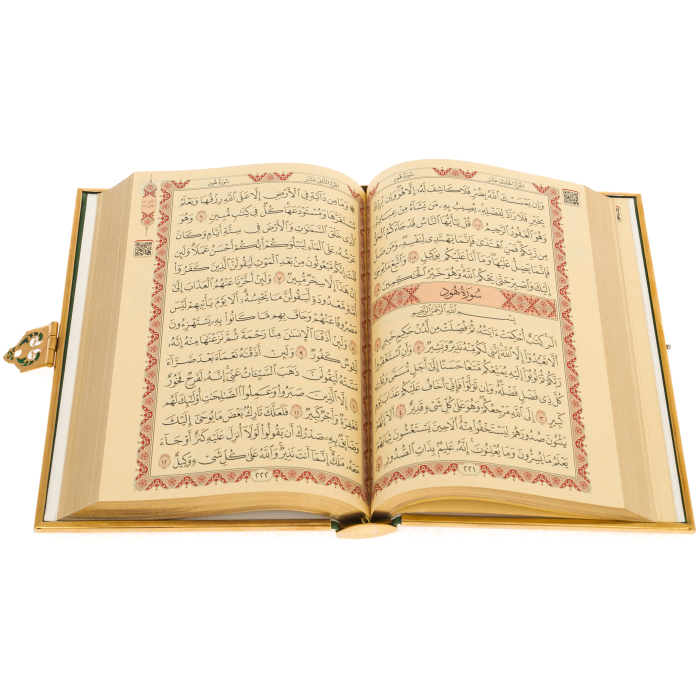 سورة هود
الجزء الحادي عشر
وَإِن يَمْسَسْكَ اللَّهُ بِضُرٍّ فَلَا كَاشِفَ لَهُ إِلَّا هُوَ وَإِن يُرِدْكَ
بِخَيْرٍ فَلَا رَادَّ لِفَضْلِهِ يُصِيبُ بِهِ مَن يَشَاءُ مِنْ عِبَادِهِ
وَهُوَ الْغَفُورُ الرَّحِيمُ ١٠٧ قُلْ يَا أَيُّهَا النَّاسُ قَدْ جَاءَكُمُ الْحَقُّ
مِن رَّبِّكُمْ فَمَنِ اهْتَدَى فَإِنَّمَا يَهْتَدِي لِنَفْسِهِ وَمَن ضَلَّ
فَإِنَّمَا يَضِلُّ عَلَيْهَا وَمَا أَنَا عَلَيْكُم بِوَكِيلٍ ١٠٨ وَاتَّبِعْ مَا يُوحَى
إِلَيْكَ وَاصْبِرْ حَتَّى يَحْكُمَ اللَّهُ وَهُوَ خَيْرُ الْحَاكِمِينَ ١٠٩
سُورَةُ هُودٍ
بِسْمِ اللَّهِ الرَّحْمَٰنِ الرَّحِيمِ
الر كِتَابٌ أُحْكِمَتْ آيَاتُهُ ثُمَّ فُصِّلَتْ مِن لَّدُنْ حَكِيمٍ خَبِيرٍ ١
أَلَّا تَعْبُدُوا إِلَّا اللَّهَ إِنَّنِي لَكُم مِّنْهُ نَذِيرٌ وَبَشِيرٌ ٢ وَأَنِ اسْتَغْفِرُوا
رَبَّكُمْ ثُمَّ تُوبُوا إِلَيْهِ يُمَتِّعْكُم مَّتَاعًا حَسَنًا إِلَى أَجَلٍ مُّسَمًّى وَيُؤْتِ
كُلَّ ذِي فَضْلٍ فَضْلَهُ وَإِن تَوَلَّوْا فَإِنِّي أَخَافُ عَلَيْكُمْ عَذَابَ يَوْمٍ
كَبِيرٍ ٣ إِلَى اللَّهِ مَرْجِعُكُمْ وَهُوَ عَلَى كُلِّ شَيْءٍ قَدِيرٌ ٤ أَلَا إِنَّهُمْ
يَثْنُونَ صُدُورَهُمْ لِيَسْتَخْفُوا مِنْهُ أَلَا حِينَ يَسْتَغْشُونَ ثِيَابَهُمْ
يَعْلَمُ مَا يُسِرُّونَ وَمَا يُعْلِنُونَ إِنَّهُ عَلِيمٌ بِذَاتِ الصُّدُورِ ٥
٢٢١
سورة هود
الجزء الثاني عشر
وَمَا مِن دَابَّةٍ فِي الْأَرْضِ إِلَّا عَلَى اللَّهِ رِزْقُهَا وَيَعْلَمُ
مُسْتَقَرَّهَا وَمُسْتَوْدَعَهَا كُلٌّ فِي كِتَابٍ مُّبِينٍ ٦ وَهُوَ
الَّذِي خَلَقَ السَّمَاوَاتِ وَالْأَرْضَ فِي سِتَّةِ أَيَّامٍ وَكَانَ
عَرْشُهُ عَلَى الْمَاءِ لِيَبْلُوَكُمْ أَيُّكُمْ أَحْسَنُ عَمَلًا وَلَئِن
قُلْتَ إِنَّكُم مَّبْعُوثُونَ مِن بَعْدِ الْمَوْتِ لَيَقُولَنَّ الَّذِينَ كَفَرُوا
إِنْ هَٰذَا إِلَّا سِحْرٌ مُّبِينٌ ٧ وَلَئِنْ أَخَّرْنَا عَنْهُمُ الْعَذَابَ إِلَى
أُمَّةٍ مَّعْدُودَةٍ لَّيَقُولُنَّ مَا يَحْبِسُهُ أَلَا يَوْمَ يَأْتِيهِمْ لَيْسَ
مَصْرُوفًا عَنْهُمْ وَحَاقَ بِهِم مَّا كَانُوا بِهِ يَسْتَهْزِئُونَ
٨ وَلَئِنْ أَذَقْنَا الْإِنسَانَ مِنَّا رَحْمَةً ثُمَّ نَزَعْنَاهَا مِنْهُ إِنَّهُ
لَيَئُوسٌ كَفُورٌ ٩ وَلَئِنْ أَذَقْنَاهُ نَعْمَاءَ بَعْدَ ضَرَّاءَ
مَسَّتْهُ لَيَقُولَنَّ ذَهَبَ السَّيِّئَاتُ عَنِّي إِنَّهُ لَفَرِحٌ فَخُورٌ
١٠ إِلَّا الَّذِينَ صَبَرُوا وَعَمِلُوا الصَّالِحَاتِ أُولَٰئِكَ لَهُم
مَّغْفِرَةٌ وَأَجْرٌ كَبِيرٌ ١١ فَلَعَلَّكَ تَارِكٌ بَعْضَ مَا يُوحَى إِلَيْكَ
وَضَائِقٌ بِهِ صَدْرُكَ أَن يَقُولُوا لَوْلَا أُنزِلَ عَلَيْهِ كَنزٌ أَوْ جَاءَ
مَعَهُ مَلَكٌ إِنَّمَا أَنتَ نَذِيرٌ وَاللَّهُ عَلَى كُلِّ شَيْءٍ وَكِيلٌ ١٢
٢٢٢